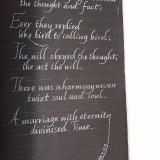 the thought and fact;
Ever they replied
like bird to calling bird;
The will obeyed the thought;
the act the will.
There was a harmony woven
twixt soul and soul.
A marriage with eternity
divinised Time.